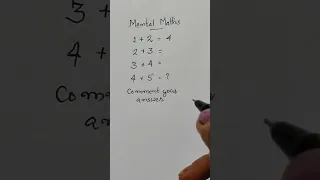 Mental Maths
1 + 2 = 4
2 + 3 =
3 + 4 =
4 + 5 = ?
Comment your
answer